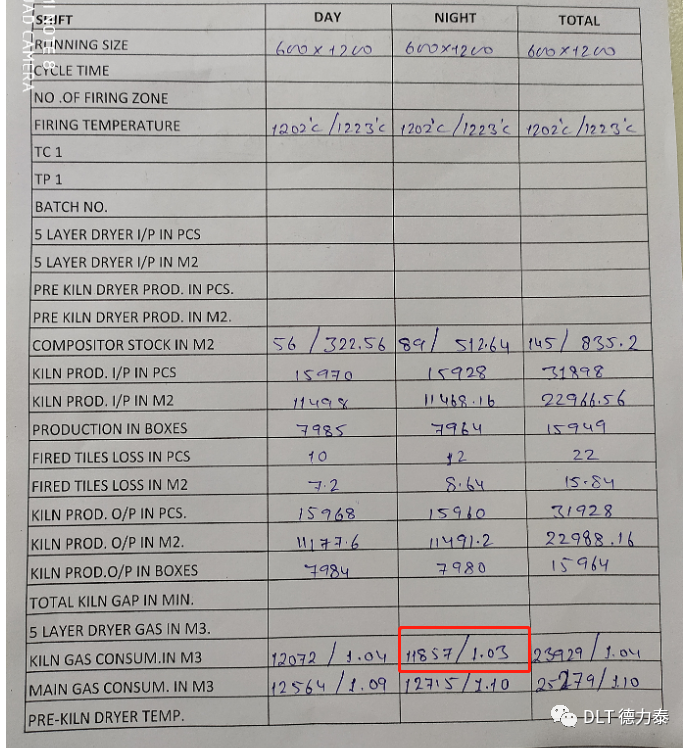 SHIFT DAY NIGHT TOTAL
RUNNING SIZE 600x1200 600x1200 600x1200
CYCLE TIME
NO .OF FIRING ZONE
FIRING TEMPERATURE 1202°c/1223°c 1202°c/1223°c 1202°c/1223°c
TC 1
TP 1
BATCH NO.
5 LAYER DRYER I/P IN PCS
5 LAYER DRYER I/P IN M2
PRE KILN DRYER PROD. IN PCS.
PRE KILN DRYER PROD. IN M2.
COMPOSITOR STOCK IN M2 56 / 322.56 89/ 512.64 145/ 835.2
KILN PROD. I/P IN PCS 15970 15928 31898
KILN PROD. I/P IN M2 11498 11468.16 22966.56
PRODUCTION IN BOXES 7985 7964 15949
FIRED TILES LOSS IN PCS 10 12 22
FIRED TILES LOSS IN M2 7.2 8.64 15.84
KILN PROD. O/P IN PCS. 15968 15960 31928
KILN PROD. O/P IN M2. 11177.6 11491.2 22988.16
KILN PROD.O/P IN BOXES 7984 7980 15964
TOTAL KILN GAP IN MIN.
5 LAYER DRYER GAS IN M3.
KILN GAS CONSUM.IN M3 12072 / 1.04 11857/1.03 23929/1.04
MAIN GAS CONSUM. IN M3 12564/1.09 12715/1.10 25279/1.10
PRE-KILN DRYER TEMP.
DLT 德力泰